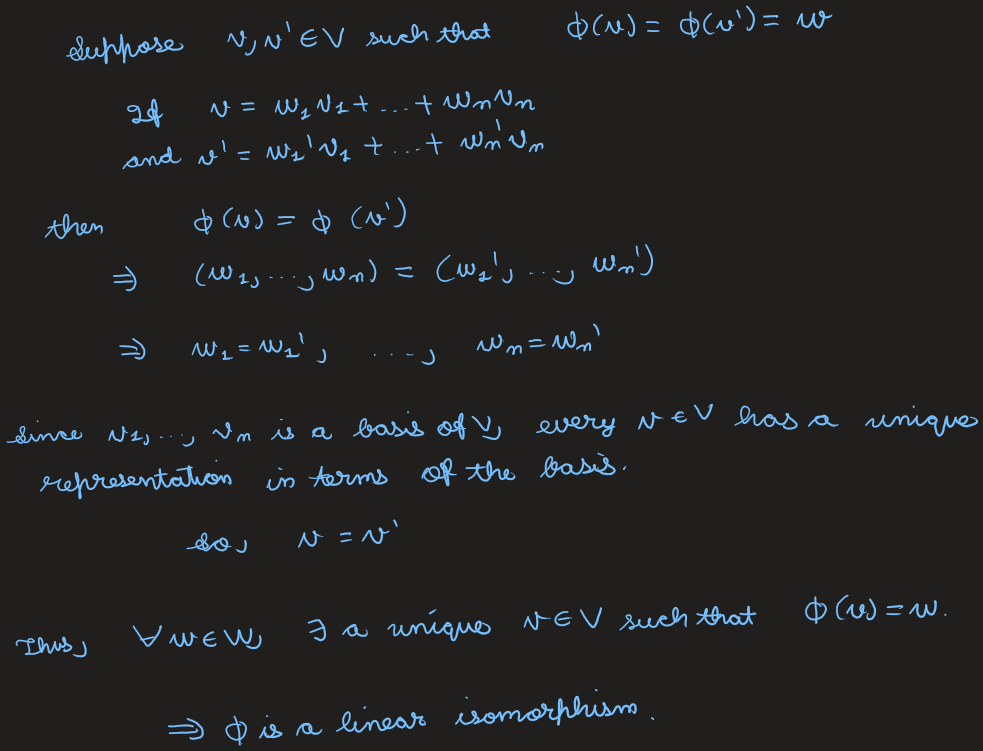 Suppose v, v' ∈ V such that ϕ(v) = ϕ(v') = w
If v = w₁v₁ + ... + wₙvₙ
and v' = w₁'v₁ + ... + wₙ'vₙ
then ϕ(v) = ϕ (v')
⇒ (w₁, ..., wₙ) = (w₁', ..., wₙ')
⇒ w₁ = w₁', ...., wₙ = wₙ'
Since v₁, ..., vₙ is a basis of V, every v ∈ V has a unique
representation in terms of the basis.
So, v = v'
Thus, ∀ w ∈ W, ∃ a unique v ∈ V such that ϕ(v) = w.
⇒ ϕ is a linear isomorphism.